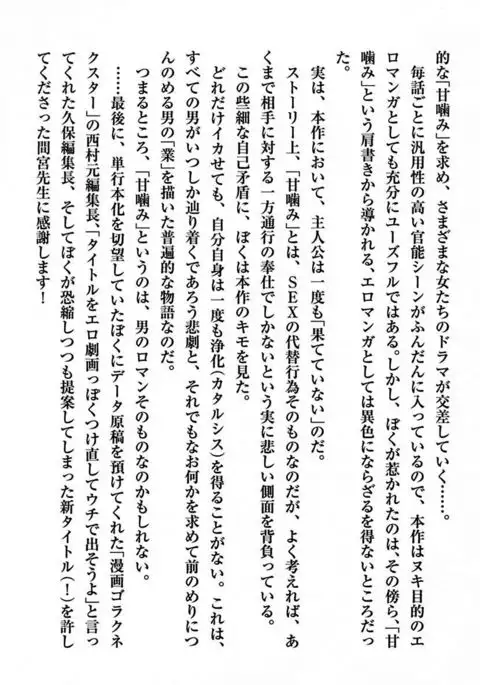 的な「甘噛み」を求め、さまざまな女たちのドラマが交差していく……。
毎話ごとに汎用性の高い官能シーンがふんだんに入っているので、本作はヌキ目的のエ
ロマンガとしても充分にユーズフルではある。しかし、ぼくが惹かれたのは、その傍ら、「甘
噛み」という肩書きから導かれる、エロマンガとしては異色にならざるを得ないところだっ
た。
実は、本作において、主人公は一度も「果てていない」のだ。
ストーリー上、「甘噛み」とは、SEXの代替行為そのものなのだが、よく考えれば、あ
くまで相手に対する一方通行の奉仕でしかないという実に悲しい側面を背負っている。
この些細な自己矛盾に、ぼくは本作のキモを見た。
どれだけイカせても、自分自身は一度も浄化(カタルシス)を得ることがない。これは、
すべての男がいつしか辿り着くであろう悲劇と、それでもなお何かを求めて前のめりにつ
んのめる男の「業」を描いた普遍的な物語なのだ。
つまるところ、「甘噛み」というのは、男のロマンそのものなのかもしれない。
……最後に、単行本化を切望していたぼくにデータ原稿を預けてくれた「漫画ゴラクネ
クスター」の西村元編集長、「タイトルをエロ劇画っぽくつけ直してウチで出そうよ」と言っ
てくれた久保編集長、そしてぼくが恐縮しつつも提案してしまった新タイトル(！)を許し
てくださった間宮先生に感謝します！